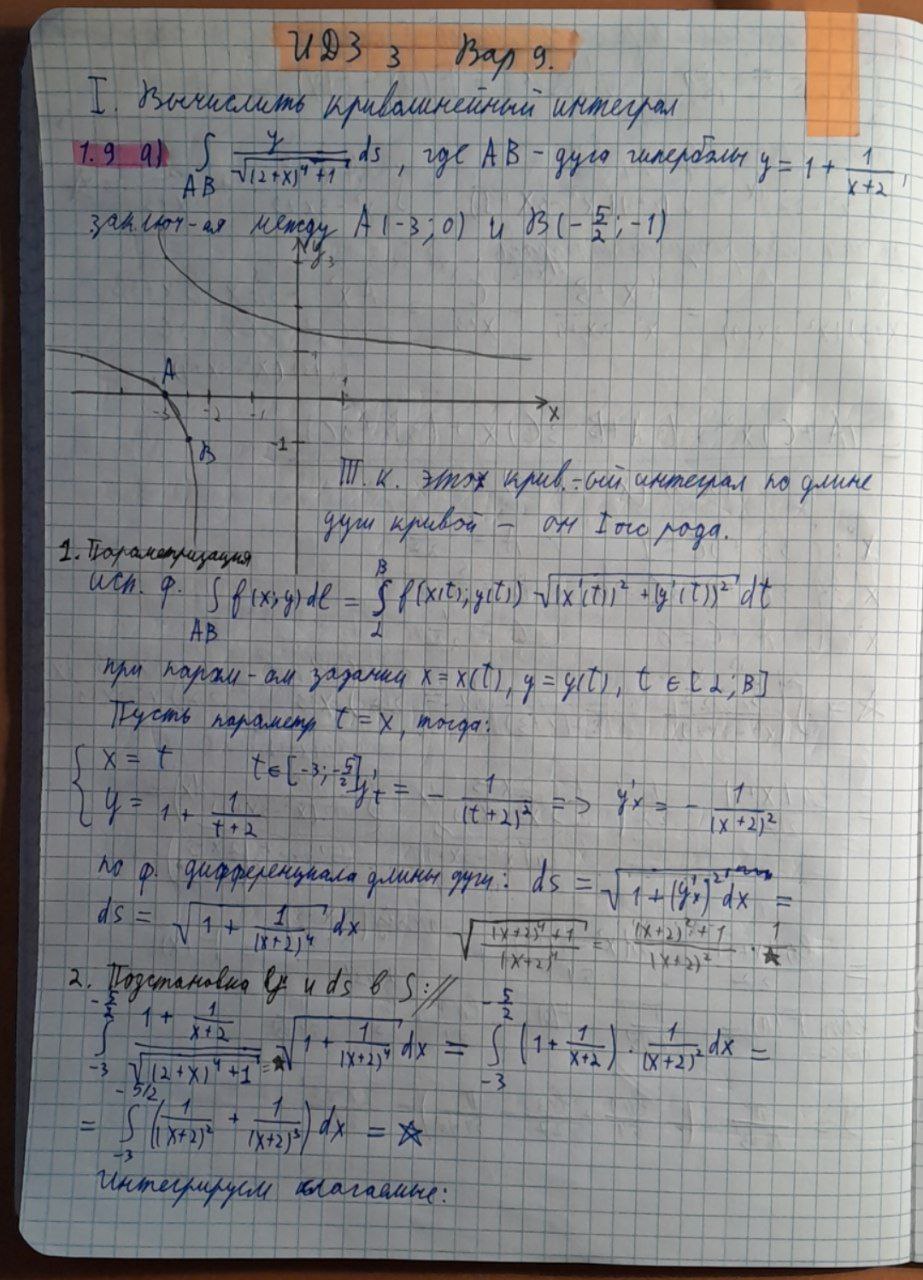 ИДЗ 3 Вар 9.
I. Вычислить криволинейный интеграл
1.9 а) ∫_{AB} y/√((2+x)^4+1) ds, где AB - дуга гиперболы y = 1 + 1/(x+2),
заключ-ая между A(-3;0) и B(-5/2;-1)
y
3
1
A
-3 -2 -1 1 x
B
-1
Т.к. этот крив.-ый интеграл по длине
дуги кривой - он I ого рода.
1. Параметризация
исп. ф. ∫_{AB} f(x;y)dl = ∫_{α}^{β} f(x(t);y(t)) √((x'(t))² + (y'(t))²) dt
при парам-ом задании x = x(t), y = y(t), t ∈ [α; β]
Пусть параметр t = x, тогда:
{ x = t t ∈ [-3; -5/2]
y = 1 + 1/(t+2) y'_t = - 1/(t+2)² => y'_x = - 1/(x+2)²
по ф. дифференциала длины дуги: ds = √(1 + (y'_x)²) dx =
ds = √(1 + 1/(x+2)^4) dx √(((x+2)^4+1)/(x+2)^4) = ((x+2)²+1)/(x+2)² · 1/☆
2. Подстановка y и ds в ∫ ://
∫_{-3}^{-5/2} (1 + 1/(x+2))/√((2+x)^4+1) =☆ √(1 + 1/(x+2)^4) dx = ∫_{-3}^{-5/2} (1 + 1/(x+2)) · 1/(x+2)² dx =
= ∫_{-3}^{-5/2} (1/(x+2)² + 1/(x+2)³) dx = ☆
Интегрируем слагаемые: